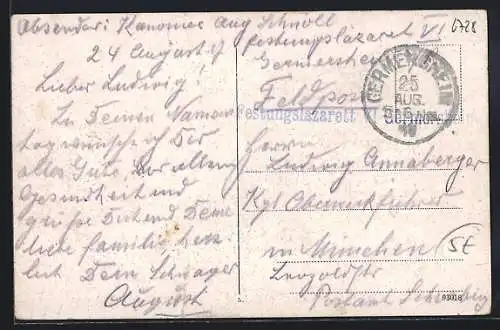 Absender: Kanonier Aug Schnoll
Festungslazaret VI
Germersheim
24 August 17
Feldpost
GERMERSHEIM
25
AUG.
Festungslazarett VI
Lieber Ludwig!
Zu Deinem Namens
tag wünsche ich Dir
alles Gute, vor allem
Gesundheit und
grüße Dich und Deine
liebe Familie herz
lich Dein Schwager
August
Herrn
Ludwig Annaberger
Kgl
in München
Leopoldstr
Postamt Schwabing
6728
St
93018